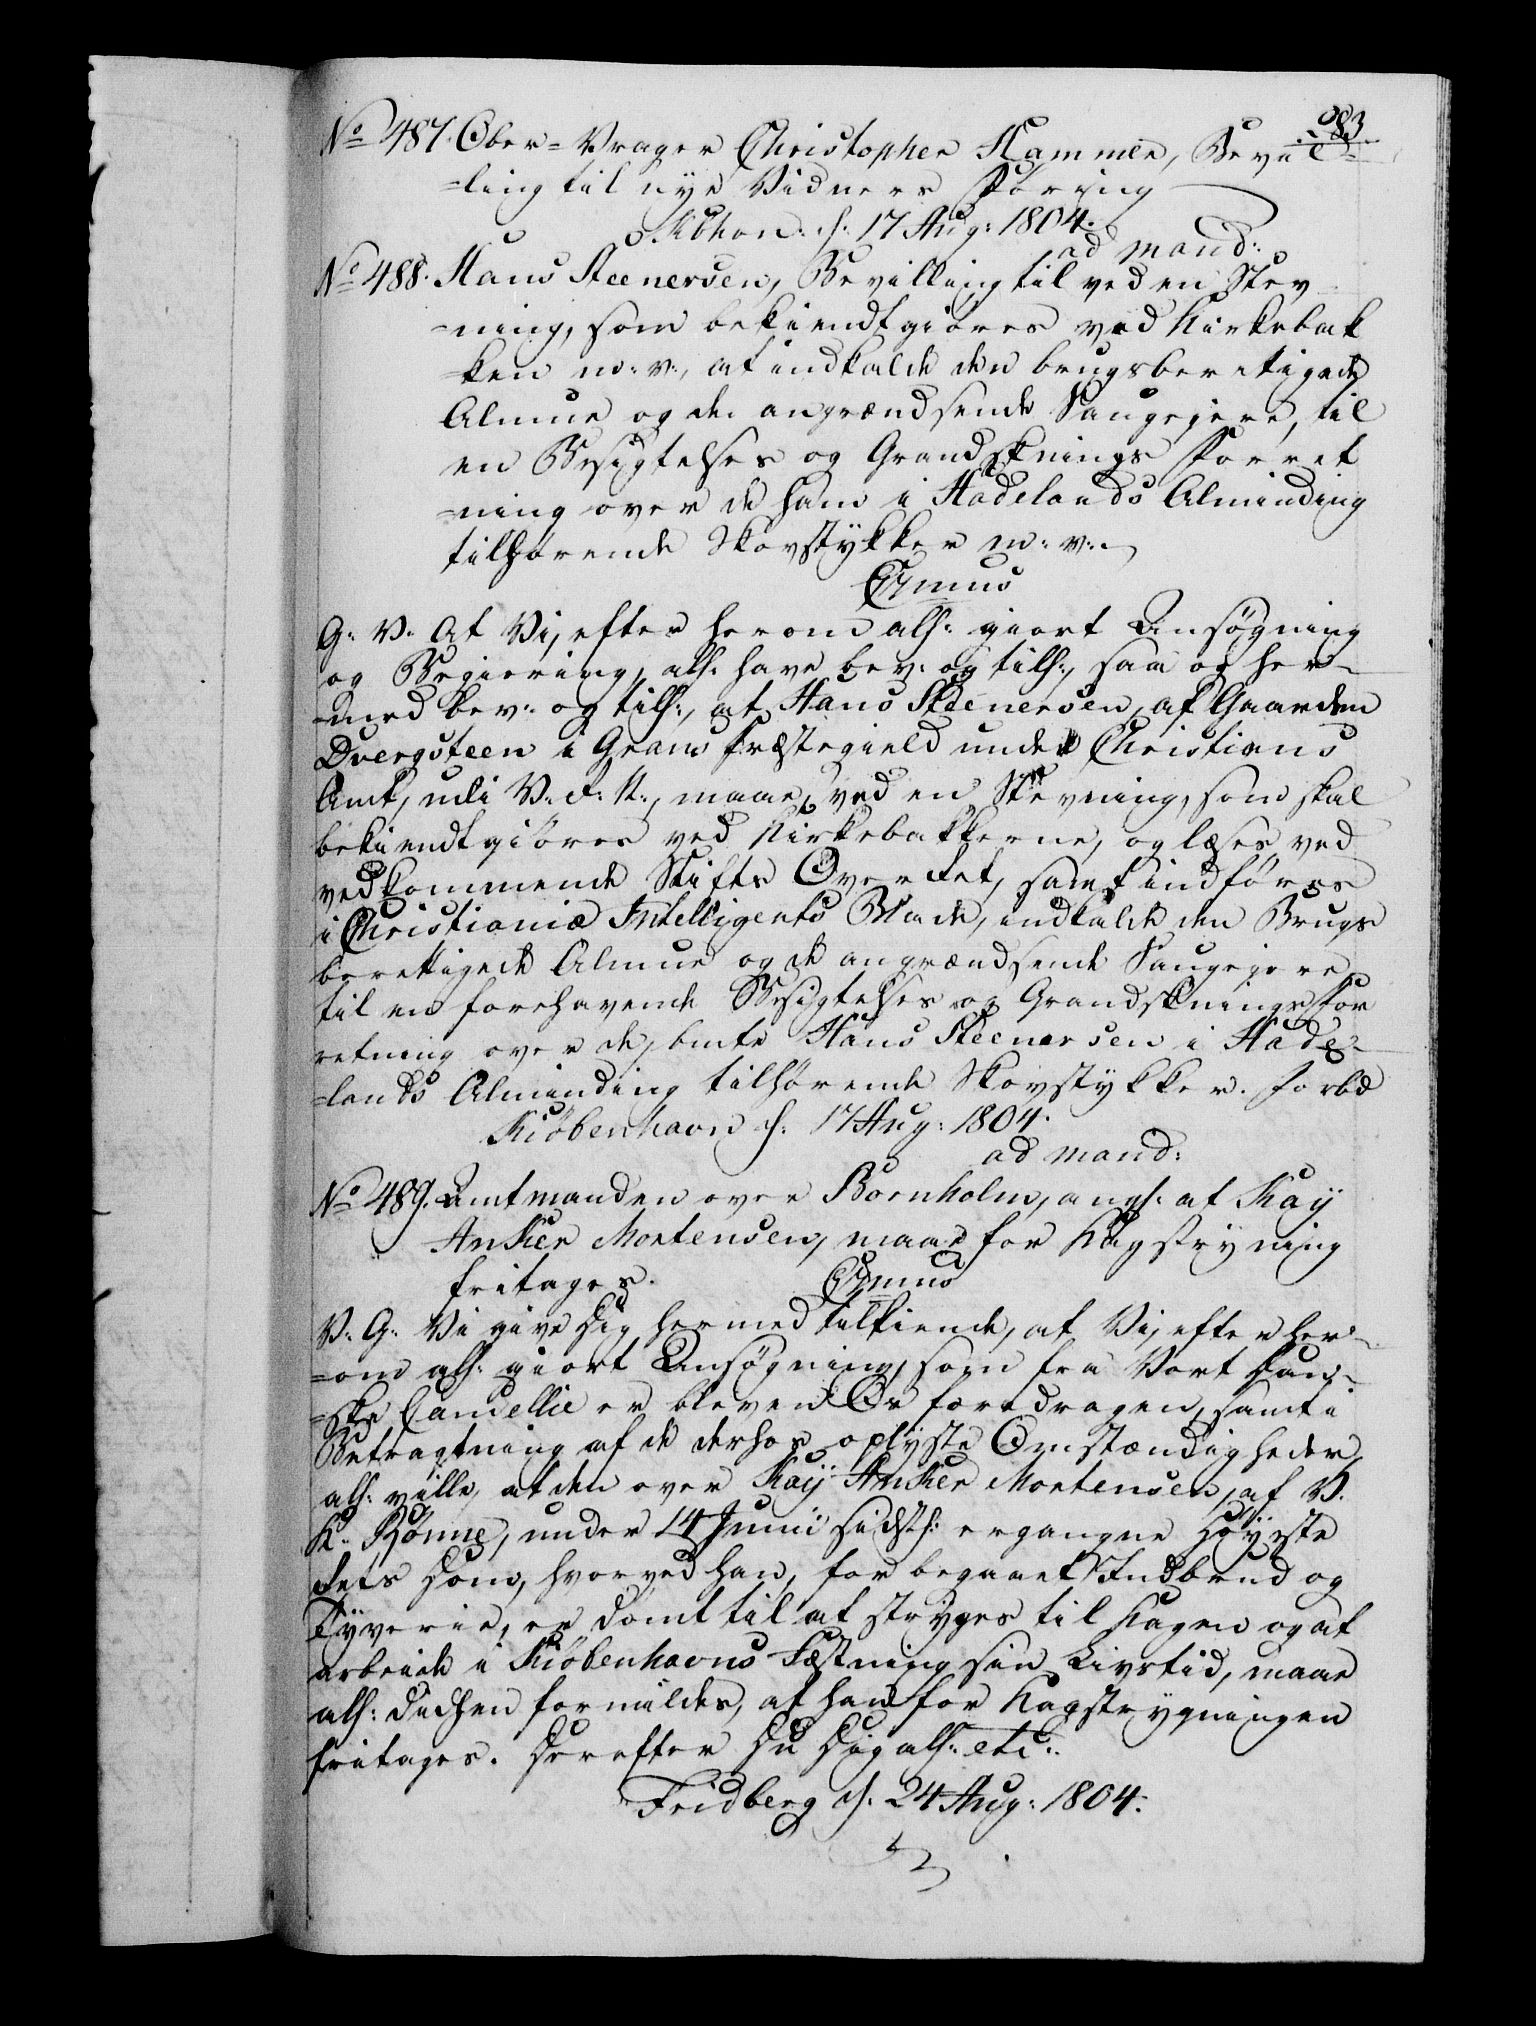 283.
No 487. Ober-Vrager Christopher Hammer, Bevil-
-ling til nye Vidners Føring
Kbhavn d: 17 Aug: 1804.
ad mand:
No 488. Hans Steenersen, Bevilling til ved en Stev-
-ning, som bekiendtgiøres ved Kirkebak
-ken m: v:, at indkalde den brugsberetigede
Almue og de angrændsende Saugejere, til
en Besigtelses og Grandsknings Forret
-ning over de ham i Hadelands Alminding
tilhørende Skovstykker m: v:
C7mus
G: V: At Vi, efter herom alh: giort Ansøgning
og Begiering, alh: have bev: og tilh:, saa og her-
-med bev: og tilh:, at Hans Steenersen, af Gaarden
Dvergsteen i Grans Præstegield under Christians
Amt, udi V: R: N:, maae, ved en Stevning, som skal
bekiendtgiöres ved Kirkebakkerne, og læses ved
vedkommende Stifts Overret, samt indföres
i Christianiæ Intelligents Blade, indkalde den Brugs
berettigede Almue og de angrændsende Saugejere
til en forehavende Besigtelses og Grandsknings For
retning over de, bmte Hans Steenersen i Hade-
-lands Alminding tilhørende Skovstykker. Forbd
Kiöbenhavn d: 17 Aug: 1804.
ad mand:
No 489. Amtmanden over Bornholm, angl: at Kay
Anker Mortensen, maae for Kagstrygning
fritages.
C7mus
V: G: Vi give Dig hermed tilkiende, at Vi, efter her-
-om alh: giort Ansøgning, som fra Vort Dan-
-ske Cancellie er bleven Os foredragen, samt i
Betragtning af de derhos oplyste Omstændigheder,
alh: ville, at den over Kay Anker Mortensen, af V:
K: Rønne, under 14 Junii sidstl: ergangne Höyeste
Rets Dom, hvorved han, for begaaet Indbrud og
Tyverie, er dömt til at stryges til Kagen og at
arbeide i Kiöbenhavns Fæstning sin Livstid, maae
alh: derhen formildes, at han for Kagstrygningen
fritages. Derefter Du Dig alh: etc:.
Fridberg d: 24 Aug: 1804.